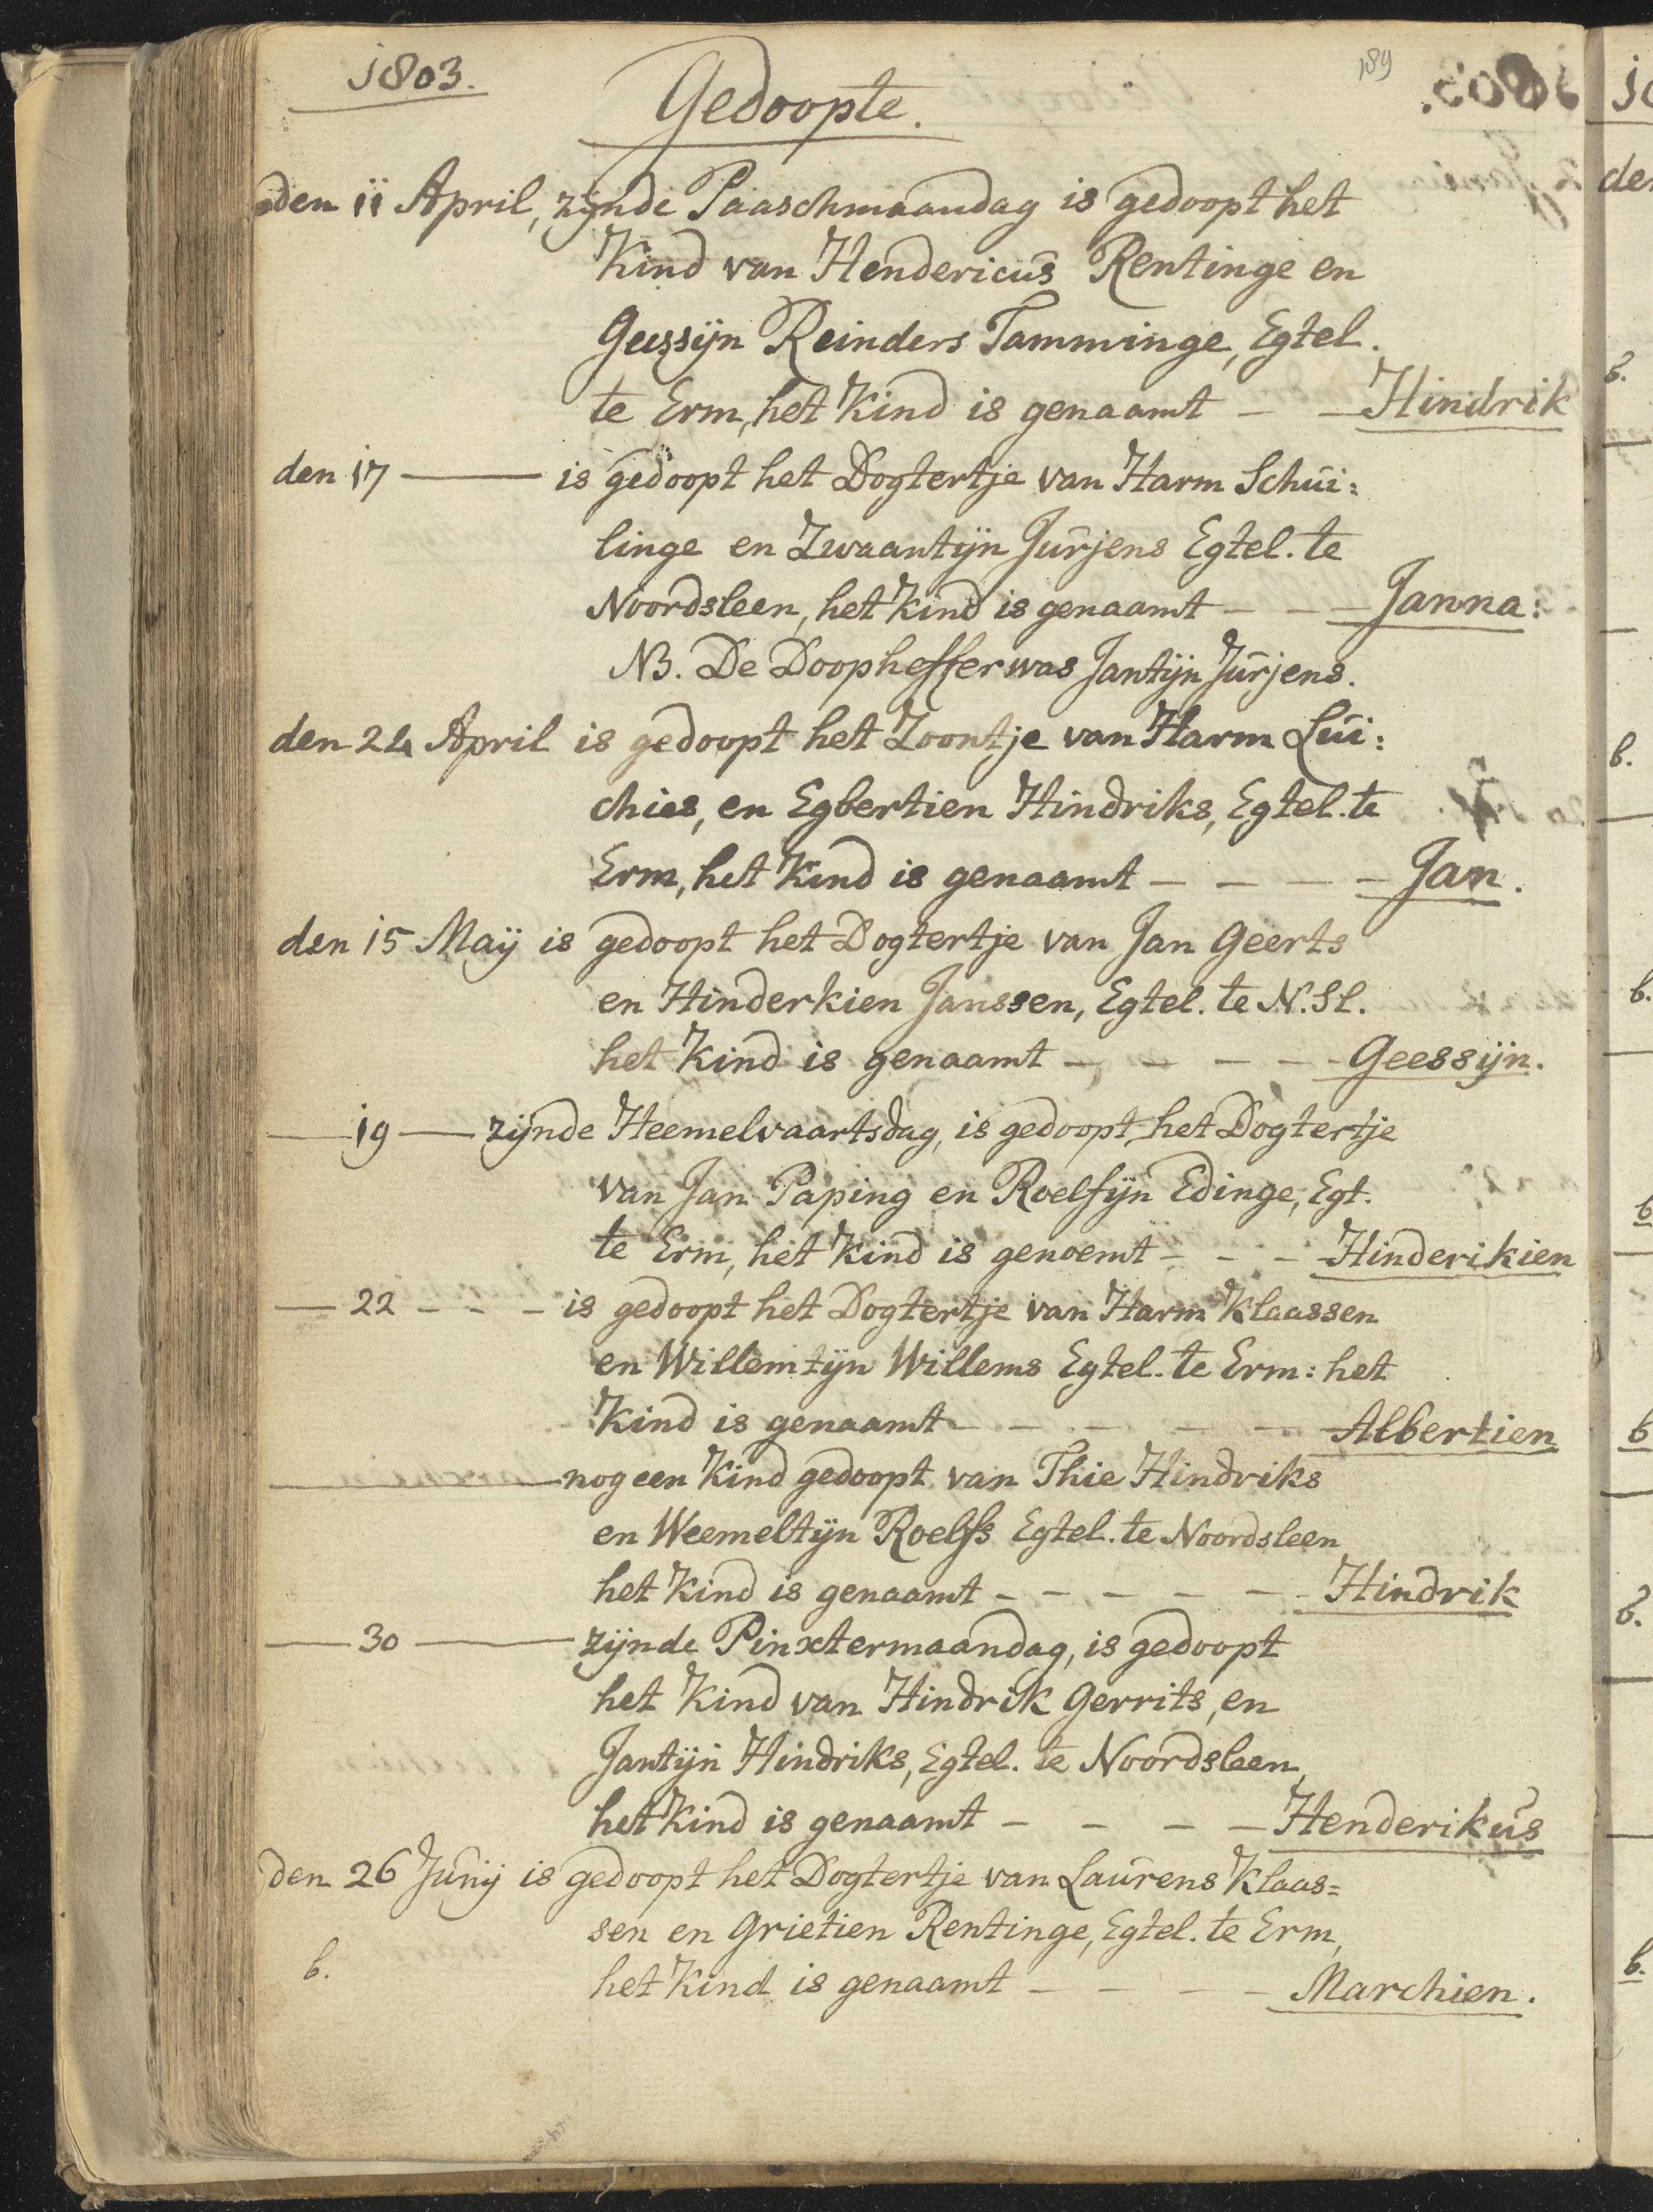 1803.
189
Gedoopte.
den 11 April, zijnde Paaschmaandag is gedoopt het
Kind van Hendericus Rentinge en
Geessijn Reinders Tamminge, Egtel.
te Erm, het Kind is genaamt - - Hindrik
den 17 — is gedoopt het Dogtertje van Harm Schui:
linge en Zwaantijn Jurjens Egtel. te
Noordsleen, het Kind is genaamt - - - Janna.
NB. De Doopheffer was Jantijn Jurjens.
den 24 April is gedoopt het Zoontje van Harm Lui:
chies, en Egbertien Hindriks, Egtel. te
Erm, het Kind is genaamt - - - - Jan.
den 15 Maÿ is gedoopt het Dogtertje van Jan Geerts
en Hinderkien Janssen, Egtel. te N. Sl.
het Kind is genaamt - - - - Geessijn.
— 19 — zijnde Heemelvaartsdag, is gedoopt, het Dogtertje
van Jan Paping en Roelfijn Edinge, Egt.
te Erm, het Kind is genoemt - - - Hinderikien
— 22 - - - is gedoopt het Dogtertje van Harm Klaassen
en Willemtijn Willems Egtel. te Erm: het
Kind is genaamt - - - - - Albertien
— nog een Kind gedoopt van Thie Hindriks
en Weemeltijn Roelfs Egtel. te Noordsleen
het Kind is genaamt - - - - - - Hindrik
— 30 — zijnde Pinxtermaandag, is gedoopt
het Kind van Hindrik Gerrits, en
Jantijn Hindriks, Egtel. te Noordsleen,
het Kind is genaamt - - - - Henderikus
den 26 Junij is gedoopt het Dogtertje van Laurens Klaas=
sen en Grietien Rentinge, Egtel. te Erm,
b. het Kind is genaamt - - - - Marchien.